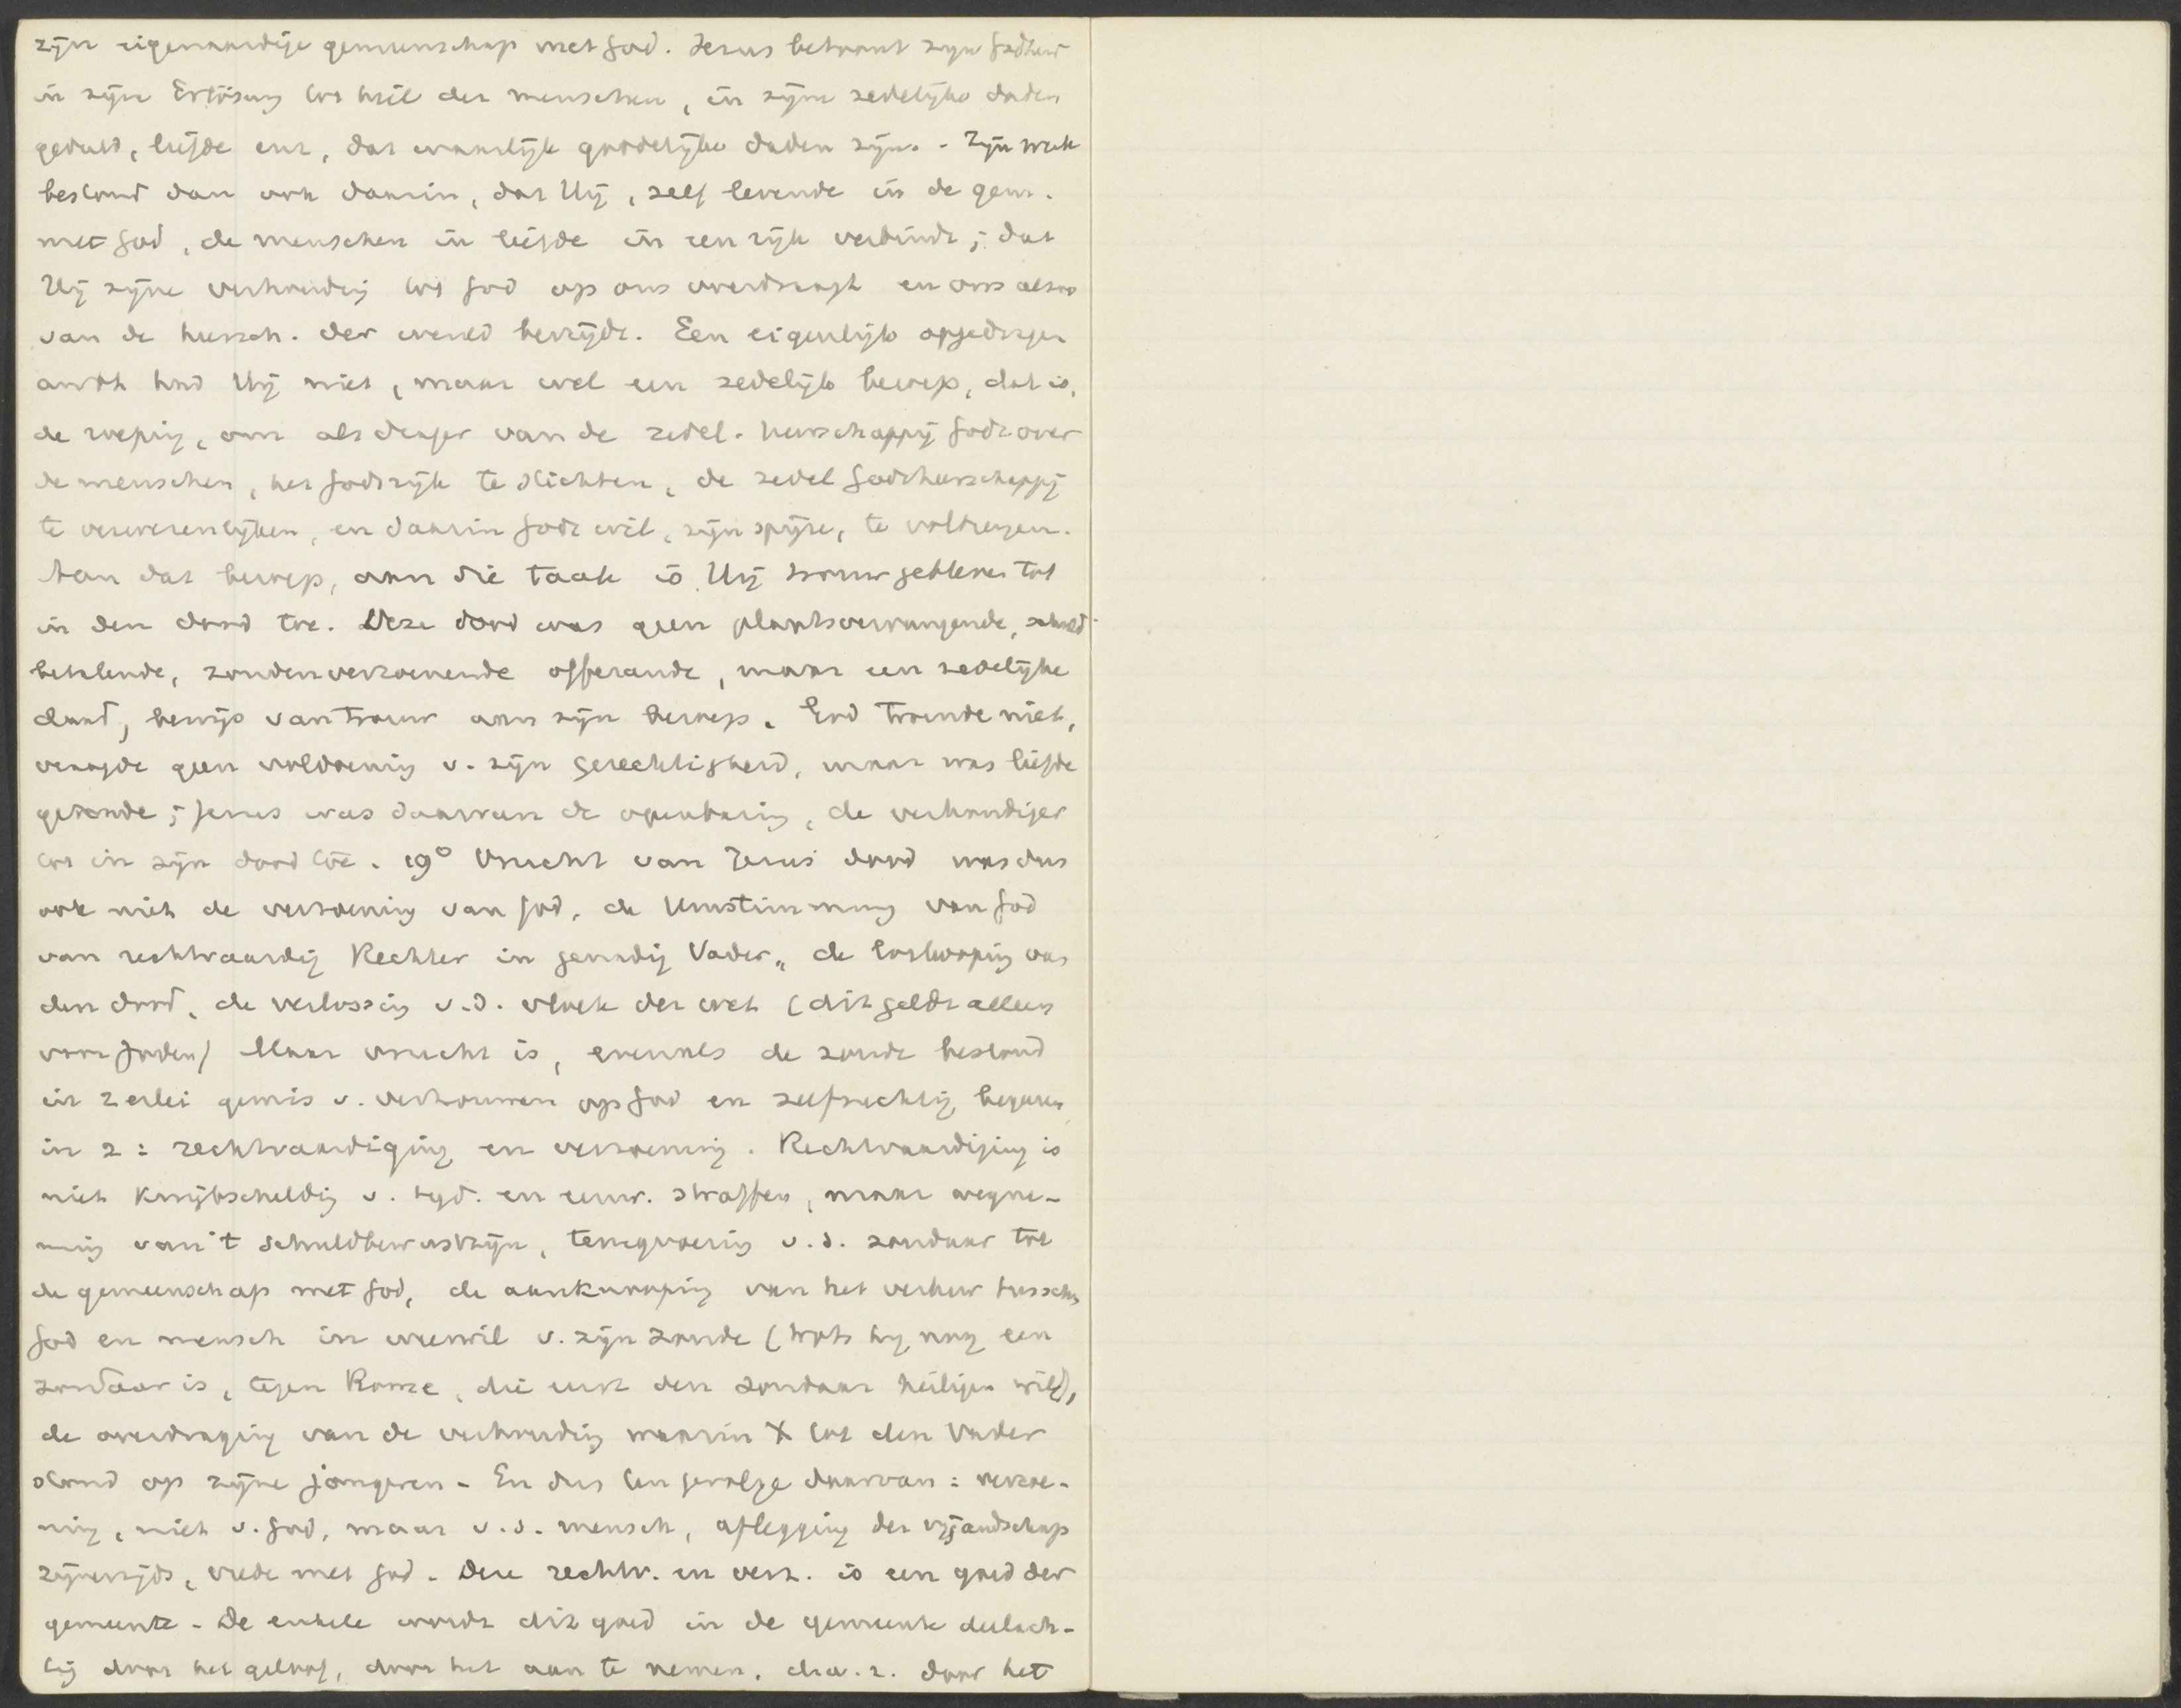 zijn eigenaardige gemeenschap met God. Jezus betoont zijn Godheid
in zijn Erlösung tot heil der menschen, in zijne zedelijke daden
geduld, liefde enz, dat waarlijk goddelijke daden zijn. - Zijn werk
bestond dan ook daarin, dat Hij, zelf levende in de gem.
met God, de menschen in liefde in een rijk verbindt; dat
Hij zijne verhouding tot God op ons overdraagt en ons alzoo
van de heersch. der wereld bevrijdt. Een eigenlijk opgedragen
ambt had Hij niet, maar wel een zedelijk beroep, dat is,
de roeping, om als drager van de zedel. heerschappij Gods over
de menschen, het Godsrijk te stichten, de zedel Godsheerschappij
te verwerenlijken, en daarin Gods wil, zijn spijze, te volbrengen.
Aan dat beroep, aan die taak is Hij trouw gebleven tot
in den dood toe. Deze dood was geen plaatsvervangende, schuld
betalende, zondenverzoenende offerande, maar een zedelijke
daad, bewijs van trouw aan zijn beroep. God toornde niet,
vraagde geen voldoening v. zijn gerechtigheid, maar was liefde
genade; Jezus was daarvan de openbaring, de verkondiger
tot in zijn dood toe. 19° Vrucht van Jezus dood was dus
ook niet de verzoening van God, de Umstimmung van God
van rechtvaardig Rechter in genadig Vader, de loskooping van
den dood, de verlossing v.d. vloek der wet (dit geldt alleen
voor Joden) Maar vrucht is, evenals de zonde bestond
in 2erlei gemis v. vertrouwen op God en zelfzuchtig begeeren
in 2: rechtvaardiging en verzoening. Rechtvaardiging is
niet kwijtschelding v. tijd. en eeuw. straffen, maar wegne-
ming van 't schuldbewustzijn, terugvoering v.d. zondaar tot
de gemeenschap met God, de aanknooping van het verkeer tusschen
God en mensch in weerwil v. zijn zonde (trots hij nog een
zondaar is, tegen Rome, die eerst den zondaar heiligen wil),
de overdraging van de verhouding waarin X tot den Vader
stond op zijne jongeren - En dus ten gevolge daarvan: verzoe-
ning, niet v. God, maar v.d. mensch, aflegging der vijandschap
zijnerzijds, vrede met God. Deze rechtv. en verz. is een goed der
gemeente - De enkele wordt dit goed in de gemeente deelach-
tig door het geloof, door het aan te nemen, d.w.z. door het